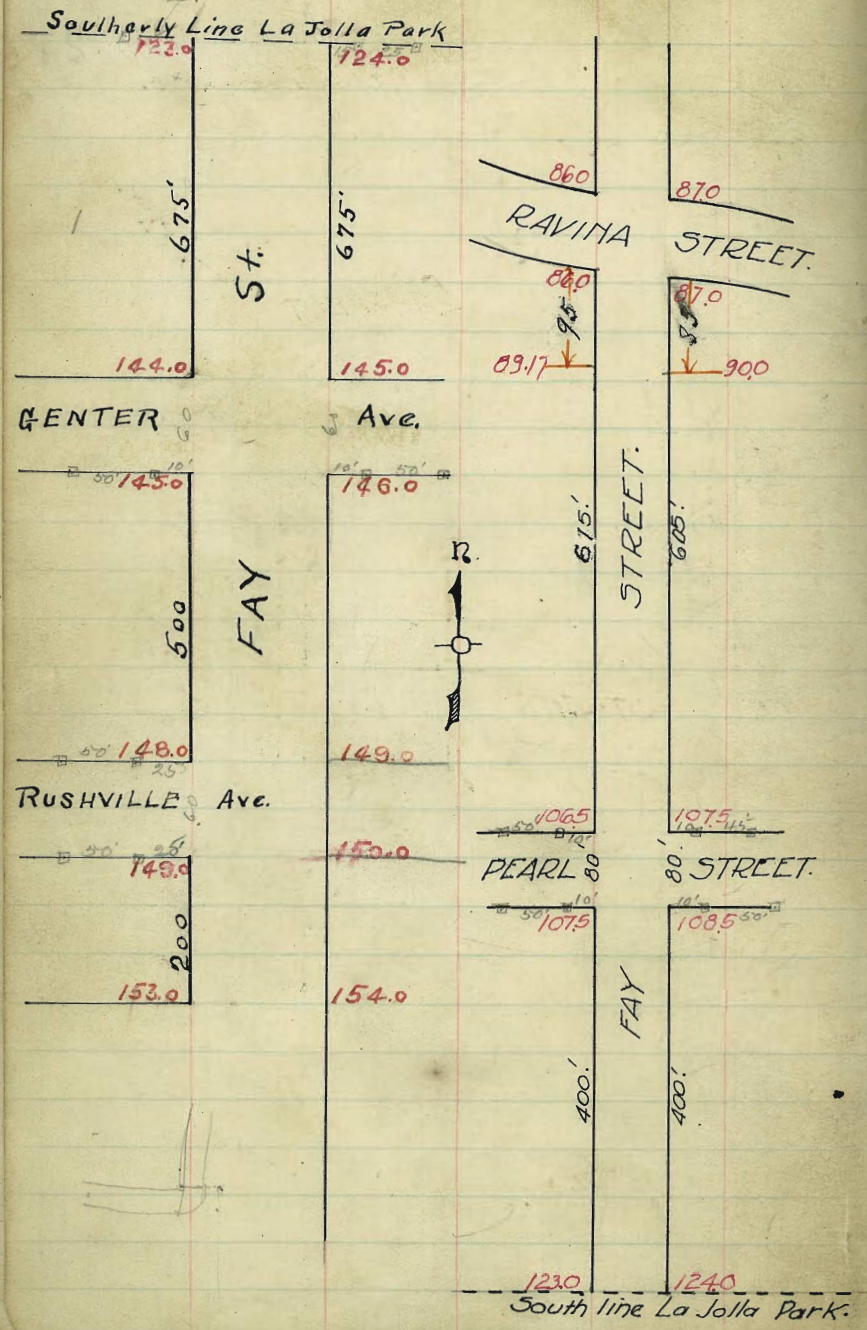 Southerly Line La Jolla Park
123.0
124.0
675'
St.
675'
144.0
145.0
GENTER
60
Ave.
50' 10'
145.0
10' 50'
146.0
500
FAY
50' 148.0
25'
149.0
RUSHVILLE Ave.
60
50' 25'
149.0
150.0
200
153.0
154.0
n.
86.0
87.0
RAVINA STREET.
86.0
87.0
95
85
89.17
90.0
615.'
STREET.
605.'
106.5
107.5
50' 10'
10' 45'
PEARL 80'
80.' STREET.
50' 10'
107.5
10'
108.5 50'
FAY
400.'
400.'
123.0
124.0
South line La Jolla Park.